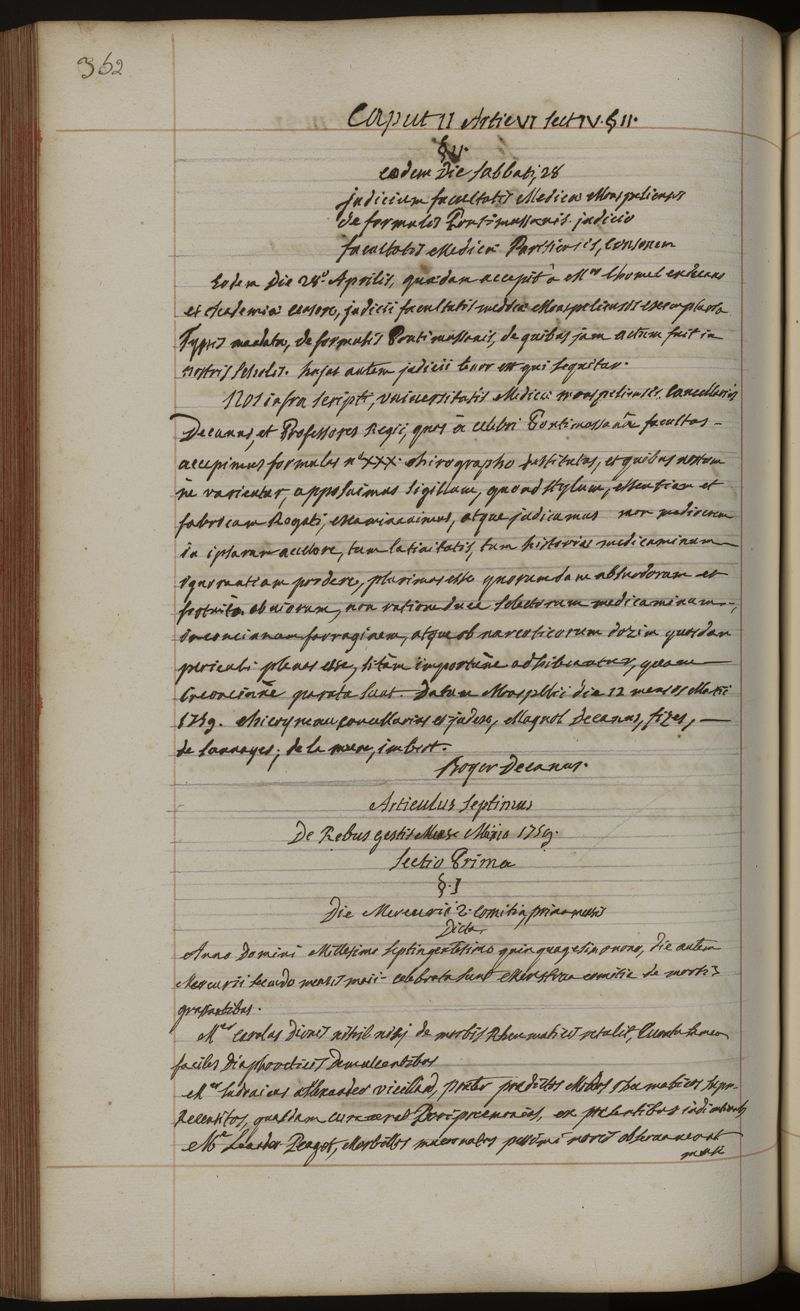 362
Caput II Artic VI Sect IV. § II.
§ II.
eodem Die Sabbati, 28
judicium facultatis Medicae Monspeliensis
de formulis Pontimussanis judicio
facultatis Medicae Parisiensis, consonum
Eodem Die 28â Aprilis, quaedam accepit a Mro Chomel
et Academiae censore, judicii facultatis medicae Monspeliensis exemplaria
Typis mandata, de formulis Pontimussanis, de quibus jam actum fuit in
nostris scholis. hujus autem judicii tenor est qui sequitur.
Nos infra scripti, universitatis Medicae monspeliensis Cancellarius
Decanus, et Professores Regii, quas à celebri Pontimussanâ facultas-
accepimus formulas n° XXX. chirographo, et quibus nostrum
ne varientur, apposuimus sigillum, quoad stylum, essentiam et
fabricam Rogati, examinavimus, atque judicamus non mediocrem
in ipsarum auctore, tum latinitatis, tum historiae medicaminum
ignorantiam prodere, plurimas esse quorumdam absurdorum et
obviorum, non ratione duce selectorum medicaminum,
inconcinnam farraginem, atque ob narcoticorum dozim quasdam
periculi plenas esse, si tàm importunè adhibeantur, quam
inconcinnè parata sunt. Datum Monspellii die 12 mensis Martii
1759. Cancellarius et judex, Magnol Decanus, fizes,
de Sauvages, de la mure, imbert.
Boyer Decanus.
Articulus Septimus
De Rebus gestis Mense Maio 1759.
Sectio Prima
§. I
Die Mercurii 2. Comitia, prima mensis
Dicta
Anno Domini Millesimo Septingentesimo quinquagesimo nono, die autem
Mercurii secundo mensis maii celebrata sunt Menstrua comitia de morbis
grassantibus.
Mer Carolus Dionis nihil nisi de morbis Rheumaticis retulit, curatu tamen
faciles Diaphoreticis Demulcentibus
Mer Ludovicus Alexander Vieillard, praeter praedictos Morbos rheumaticos supra-
Recensitos, quasdam curaverat Peripneumonias,
Mer Leander Peaget, Morbillos pessimi moris observaverat